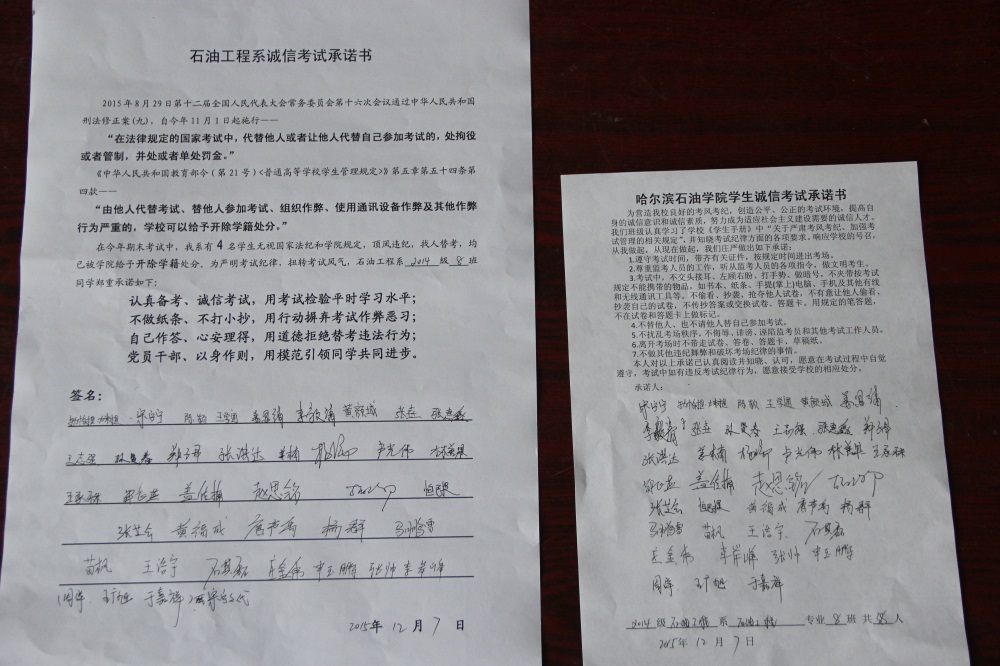 石油工程系诚信考试承诺书
2015年8月29日第十二届全国人民代表大会常务委员会第十六次会议通过中华人民共和国
刑法修正案(九)，自今年11月1日起施行——
“在法律规定的国家考试中，代替他人或者让他人代替自己参加考试的，处拘役
或者管制，并处或者单处罚金。”
《中华人民共和国教育部令(第21号)<普通高等学校学生管理规定>》第五章第五十四条第
四款——
“由他人代替考试、替他人参加考试、组织作弊、使用通讯设备作弊及其他作弊
行为严重的，学校可以给予开除学籍处分。”
在今年期末考试中，我系有4名学生无视国家法纪和学院规定，顶风违纪，找人替考，均
已被学院给予开除学籍处分。为严明考试纪律，扭转考试风气，石油工程系 2014 级 8 班
同学郑重承诺如下：
认真备考、诚信考试，用考试检验平时学习水平；
不做纸条、不打小抄，用行动摒弃考试作弊恶习；
自己作答、心安理得，用道德拒绝替考违法行为；
党员干部、以身作则，用模范引领同学共同进步。
签名：
张洪达 卢光伟
盖佳楠 赵思铭
黄福成 杨群
苗帆 王治宁 石其磊 申玉鹏 张帅
周年 于嘉祥
2015年 12 月 7 日
哈尔滨石油学院学生诚信考试承诺书
为营造我校良好的考风考纪，创造公平、公正的考试环境，提高自
身的诚信意识和诚信素质，努力成为适应社会主义建设需要的诚信人才。
我们班级认真学习了学校《学生手册》中“关于严肃考风考纪，加强考
试管理的相关规定”，并知晓考试纪律方面的各项要求，响应学校的号召，
从我做起，从现在做起，我们庄严做出如下承诺：
1.遵守考试时间，带齐有关证件，按规定时间进出考场。
2.尊重监考人员的工作，听从监考人员的各项指令，做文明考生。
3.考试中，不交头接耳、左顾右盼、打手势、做暗号，不夹带按考试
规定不能携带的物品，如书本、纸条、手提(掌上)电脑、手机及其他有线
和无线通讯工具等。不偷看、抄袭、抢夺他人试卷，不有意让他人偷看、
抄袭自己的试卷，不传抄答案或交换试卷、答题卡，用规定的笔答题，
不在试卷和答题卡上做标记。
4.不替他人，也不请他人替自己参加考试。
5.不扰乱考场秩序，不侮辱、诽谤、诬陷监考员和其他考试工作人员。
6.离开考场时不带走试卷、答卷、答题卡、草稿纸。
7.不做其他违纪舞弊和破坏考场纪律的事情。
本人对以上承诺已认真阅读并知晓、认可，愿意在考试过程中自觉
遵守，考试中如有违反考试纪律行为，愿意接受学校的相应处分。
承诺人：
张洪达 卢光伟
盖佳楠 赵思铭
黄福成 杨群
苗帆 王治宁 石其磊
张帅 申玉鹏
周年 于嘉祥
2014 级 石油工程 系 石油工程 专业 8 班 共 人
2015年 12 月 7 日